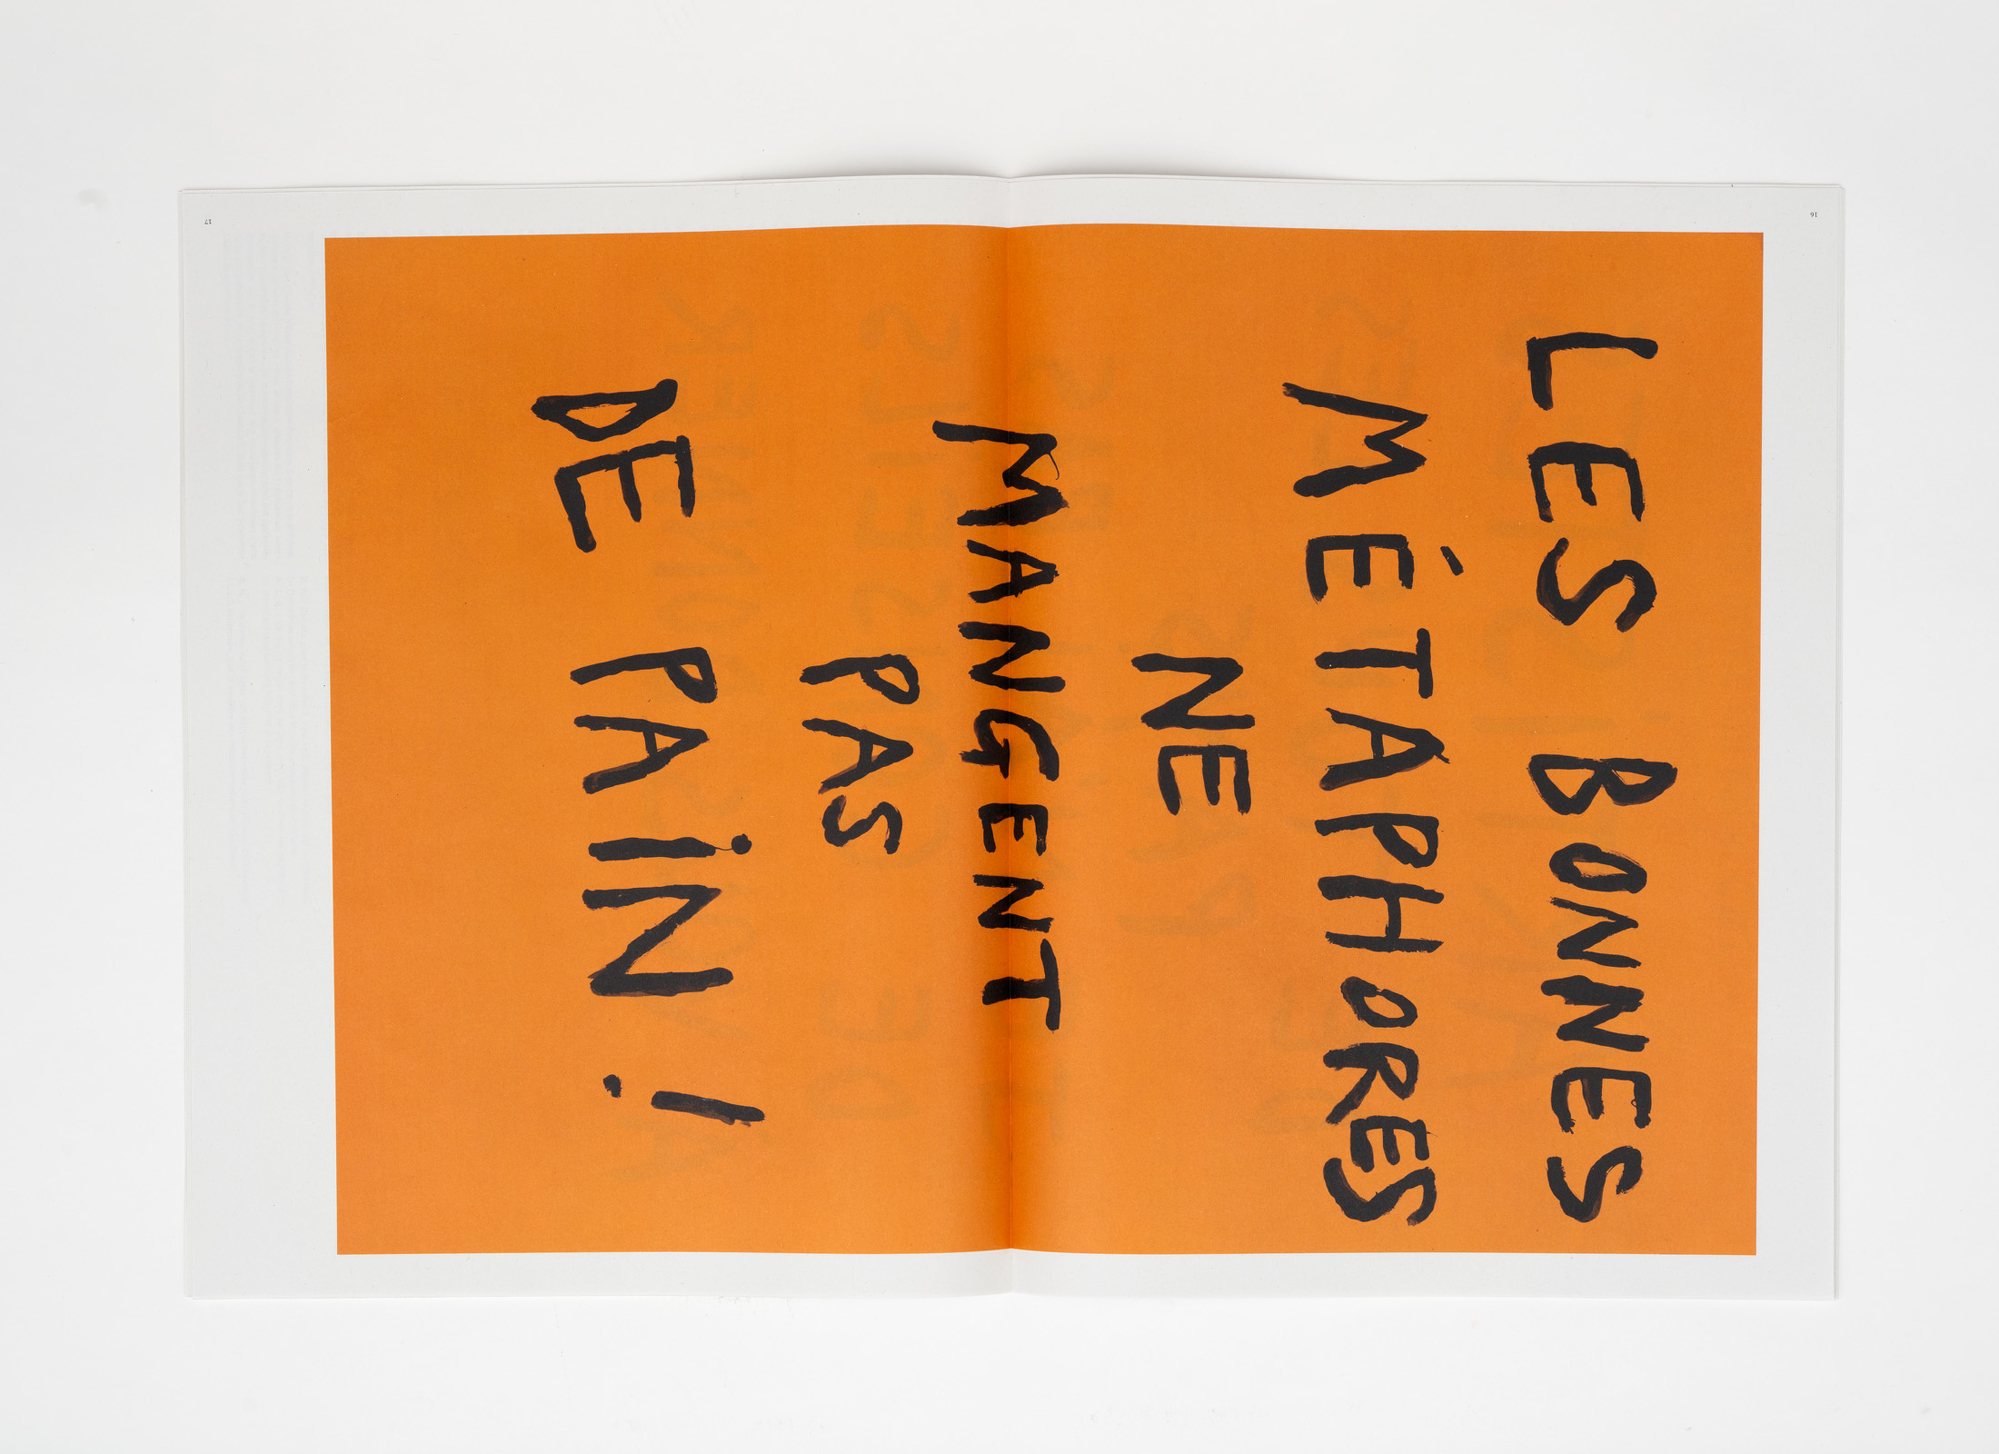 LES BONNES
MÉTAPHORES
NE
MANGENT
PAS
DE PAİN!
16
17